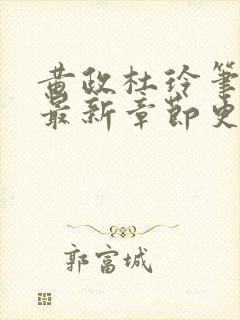 黄政杜玲笔
最新章节史
郭富城